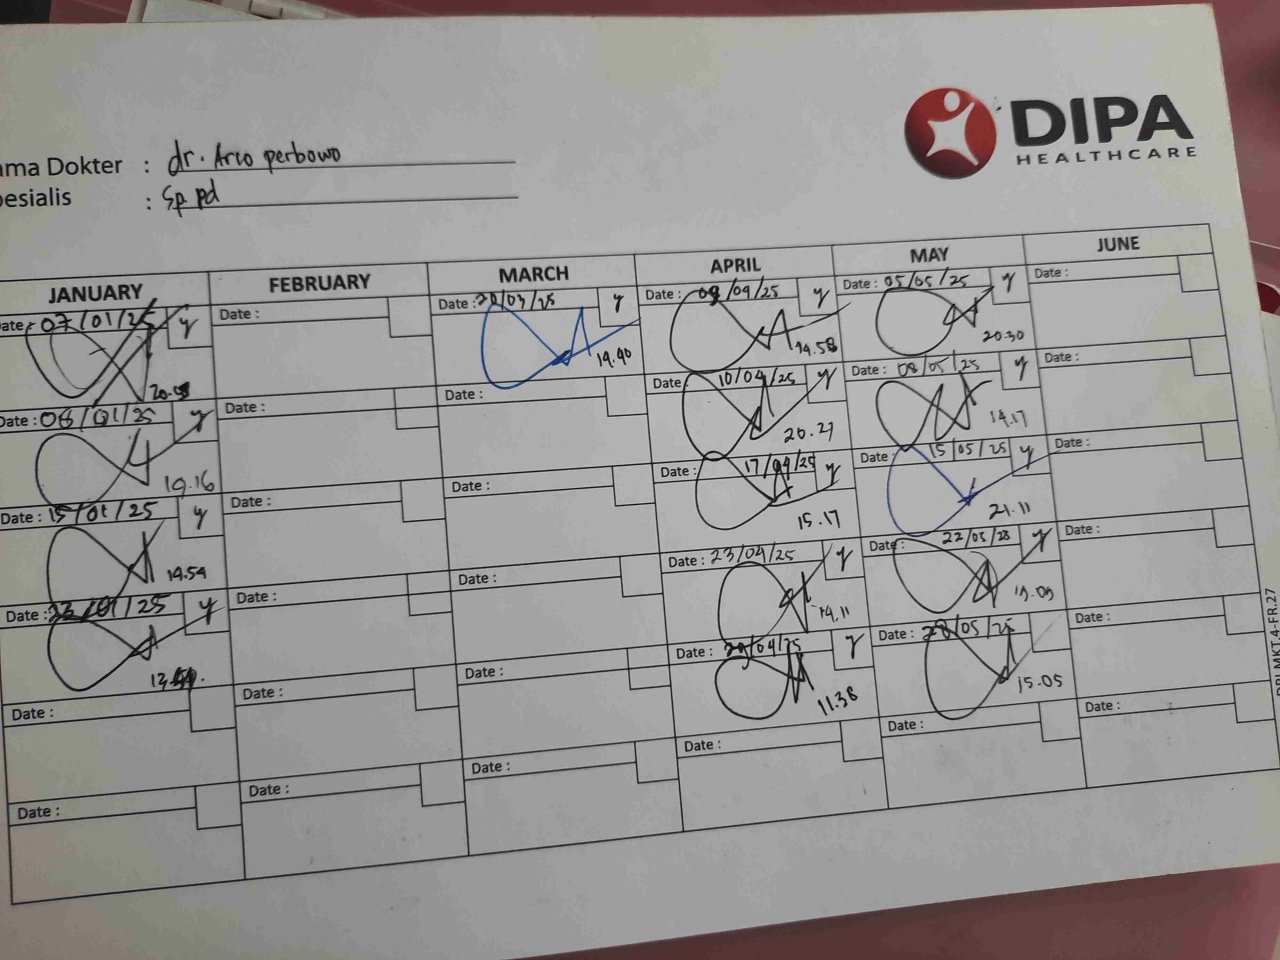 DIPA
HEALTHCARE
ama Dokter : dr. Arco perbowo
pesialis : Sp pd
JANUARY FEBRUARY MARCH APRIL MAY JUNE
Date : 07/01/25 y
Date :
Date : 20/03/25 y
Date : 09/04/25 y
Date : 05/05/25 y
Date :
14.40
14.58
20.30
Date : 08/01/25 y
Date :
Date :
Date : 10/04/25 y
Date : 08/05/25 y
Date :
19.16
20.27
14.17
Date : 15/01/25 y
Date :
Date :
Date : 17/04/25 y
Date : 15/05/25 y
Date :
14.54
15.17
21.11
Date : 23/01/25 y
Date :
Date :
Date : 23/04/25 y
Date : 22/05/25 y
Date :
14.11
Date :
Date :
Date :
Date : 29/04/25 y
Date : 28/05/25
Date :
11.38
15.05
Date :
Date :
Date :
Date :
Date :
Date :
MKT.4-FR.27